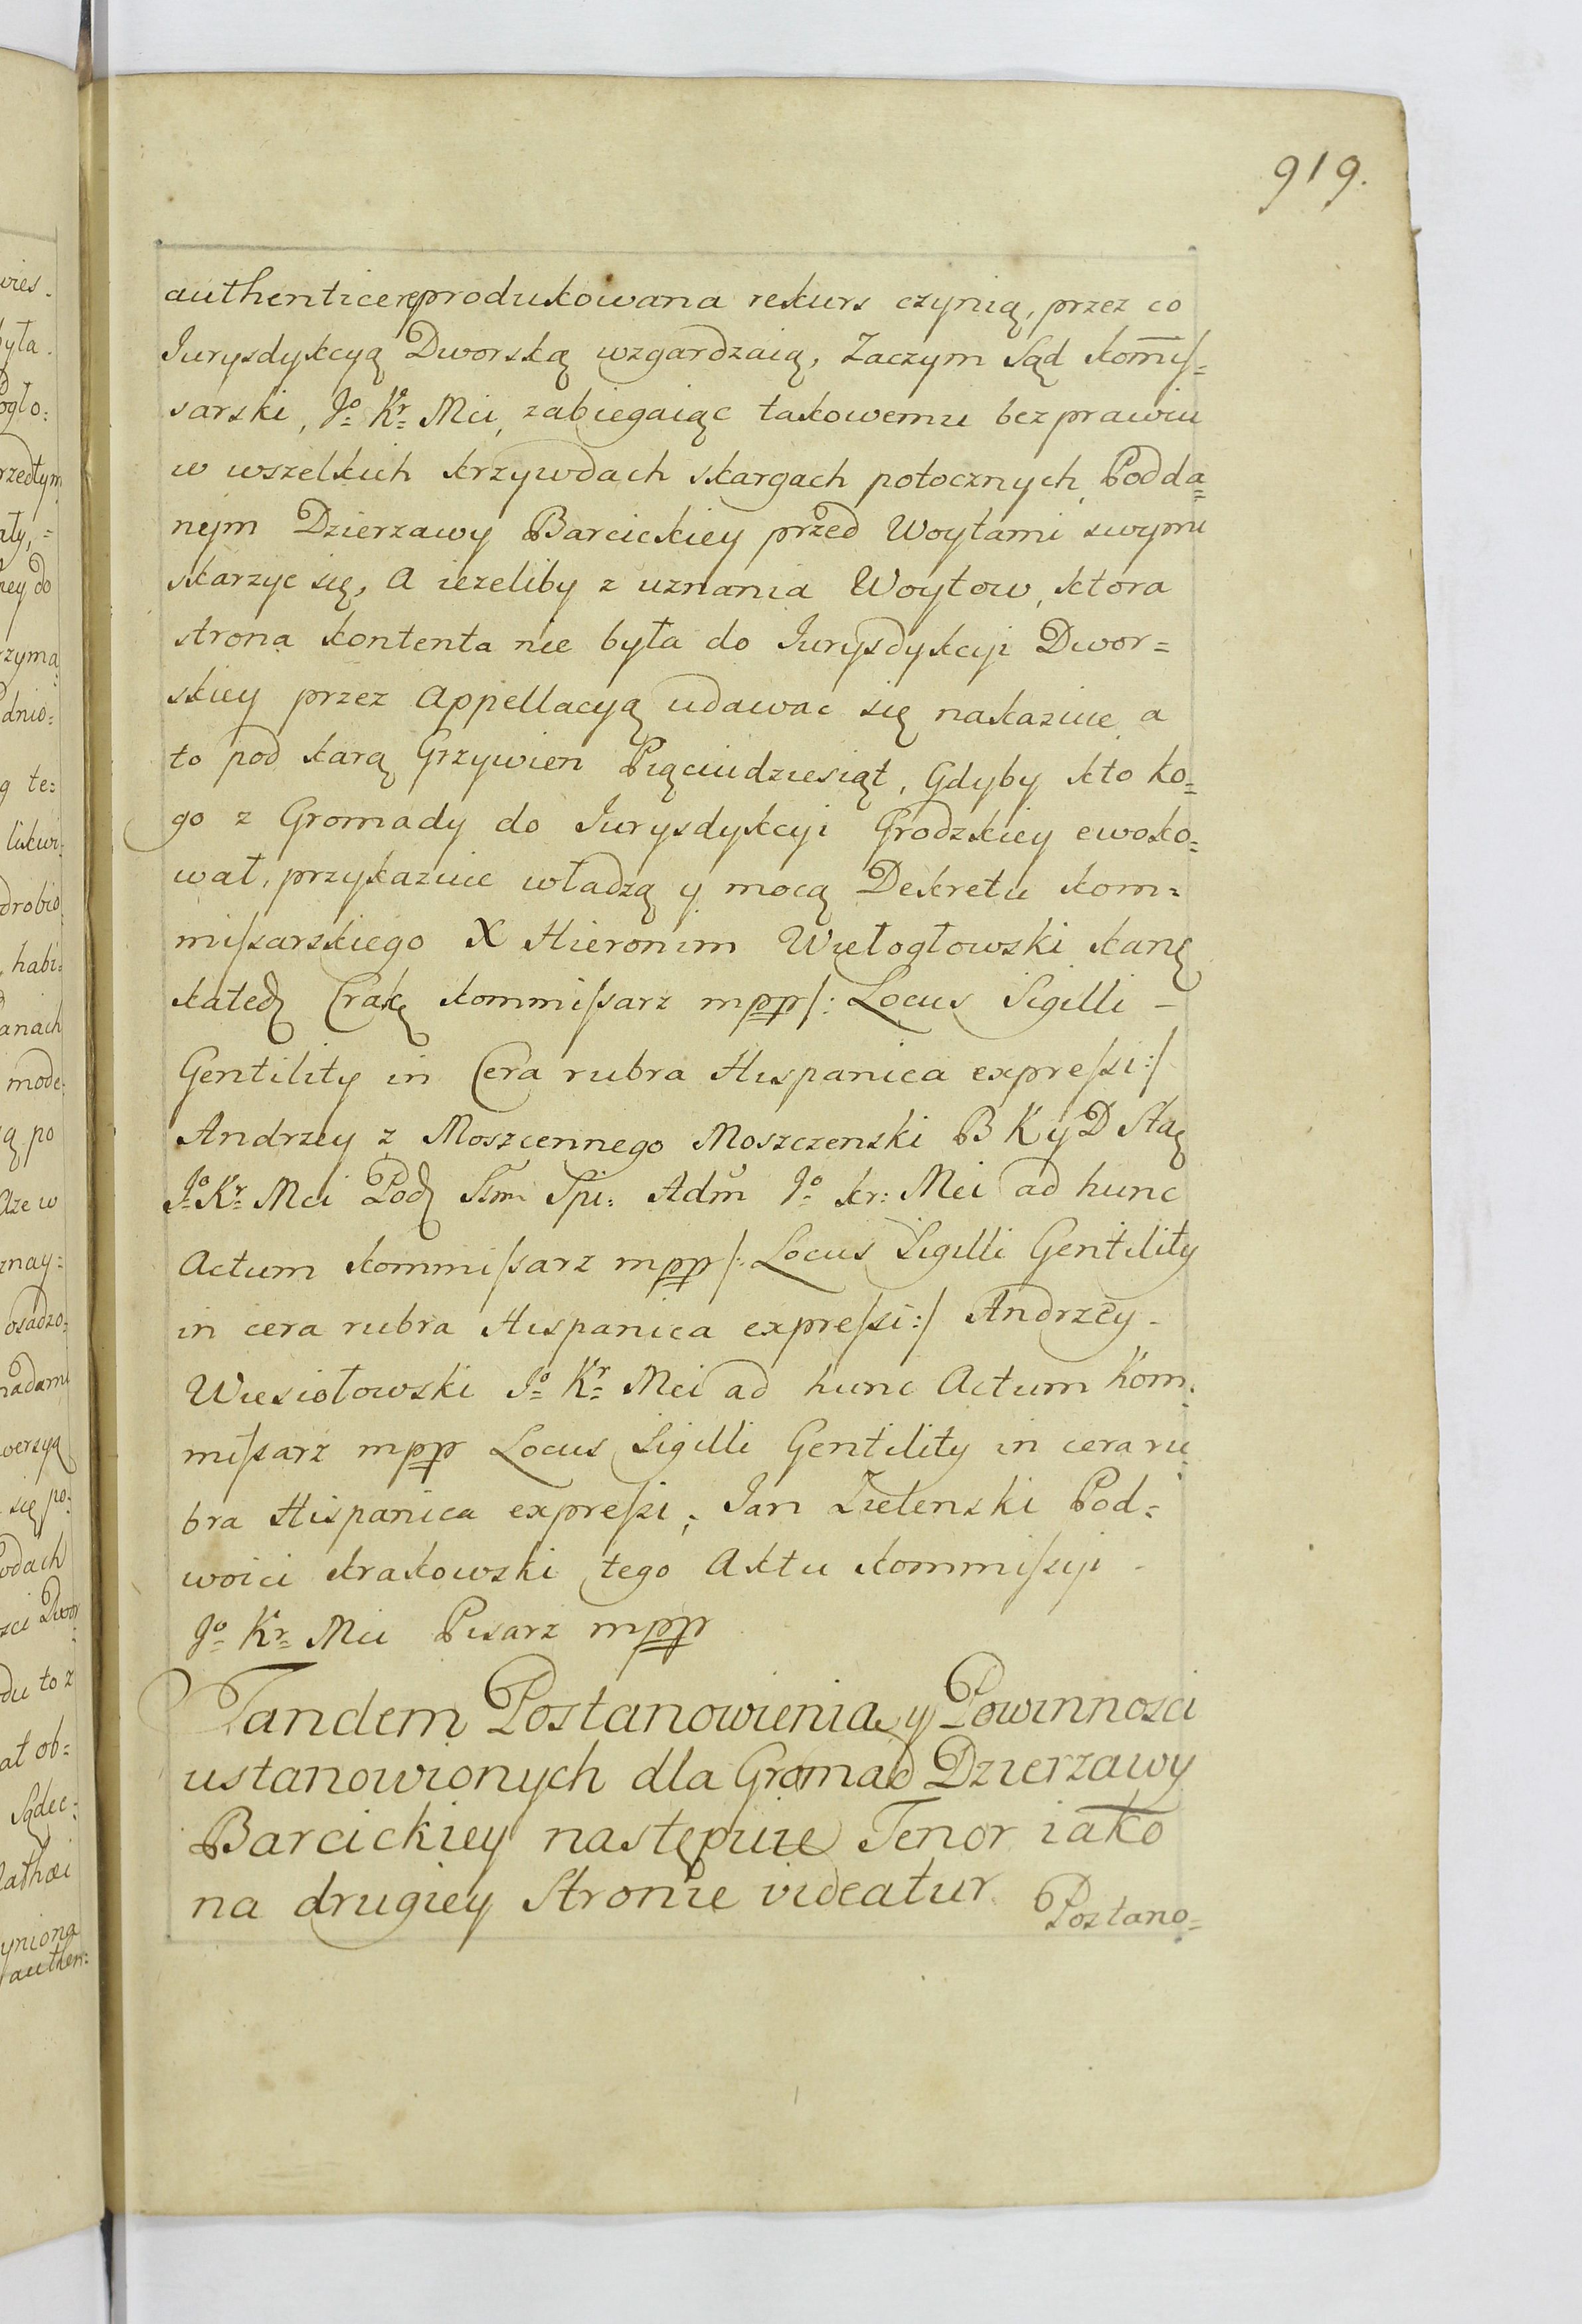 919.
authentice reprodukowana rekurs czynią, przez co
Iurysdykcyą Dworską wzgardzaią, Zaczym Sąd Kom̄is=
sarski, Jo= Kr= Mci, zabiegaiąc takowemu bezprawiu
w wszelkich krzywdach skargach potocznych, Podda=
nym Dzierzawy Barcickiey przed Woytami swymi
skarzyc się, A iezeliby z uznania Woytow, ktora
strona kontenta nie była do Iurysdykcyi Dwor=
skiey przez Appellacyą udawac się nakazuie a
to pod karą Grzywien Pięciudziesiąt, Gdyby kto ko=
go z Gromady do Iurysdykcyi Grodzkiey ewoko=
wał, przykazuie władzą y mocą Dekretu kom=
missarskiego X Hieronim Wielogłowski Kan
Kated Crak Kommissarz mpp /: Locus Sigilli -
Gentility in Cera rubra Hispanica expressi :/
Andrzey z Moszcennego Moszczenski B K y D Sta
Jo= Kr= Mci Pod Adm Jo= kr: Mci ad hunc
Actum kommissarz mpp /: Locus Sigilli Gentility
in cera rubra Hispanica expressi :/ Andrzey -
Wiesiołowski Jo= Kr= Mci ad hunc Actum Kom=
missarz mpp Locus Sigilli Gentility in cera ru=
bra Hispanica expressi; Jan Zielenski Pod=
woici krakowski tego Aktu kommissyi -
Jo= Kr= Mci Pisarz mpp
Tandem Postanowienia y Powinnosci
ustanowionych dla Gromad Dzierzawy
Barcickiey następuie Tenor iako
na drugiey Stronie videatur
Postano=